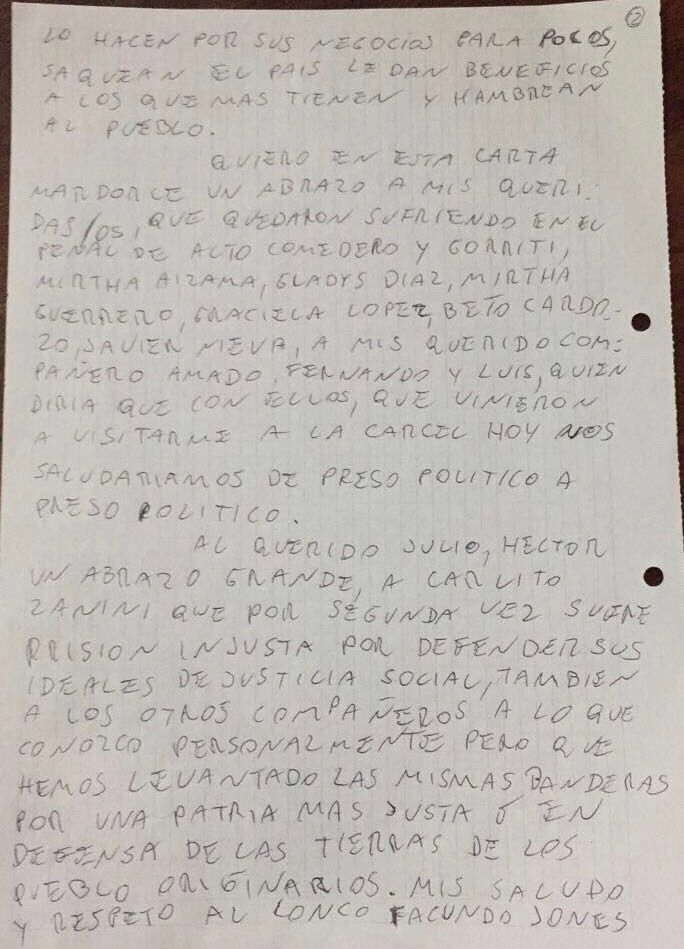 2
LO HACEN POR SUS NEGOCIOS PARA POCOS,
SAQUEAN EL PAIS LE DAN BENEFICIOS
A LOS QUE MAS TIENEN Y HAMBREAN
AL PUEBLO.
QUIERO EN ESTA CARTA
MARDORLE UN ABRAZO A MIS QUERI.
DAS/OS, QUE QUEDARON SUFRIENDO EN EL
PENAL DE ALTO COMEDERO Y GORRITI,
MIRTHA AIZAMA, GLADYS DIAZ, MIRTHA
GUERRERO, GRACIELA LOPEZ, BETO CARDO-
ZO, JAVIER NIEVA, A MIS QUERIDO COM-
PAÑERO AMADO, FERNANDO Y LUIS, QUIEN
DIRIA QUE CON ELLOS, QUE VINIERON
A VISITARME A LA CARCEL HOY NOS
SALUDARIAMOS DE PRESO POLITICO A
PRESO POLITICO.
AL QUERIDO JULIO, HECTOR
UN ABRAZO GRANDE, A CARLITO
ZANINI QUE POR SEGUNDA VEZ SUFRE
PRISION INJUSTA POR DEFENDER SUS
IDEALES DE JUSTICIA SOCIAL, TAMBIEN
A LOS OTROS COMPAÑEROS A LO QUE
CONOZCO PERSONALMENTE PERO QUE
HEMOS LEVANTADO LAS MISMAS BANDERAS
POR UNA PATRIA MAS JUSTA Ó EN
DEFENSA DE LAS TIERRAS DE LOS
PUEBLO ORIGINARIOS. MIS SALUDO
Y RESPETO AL LONCO FACUNDO JONES